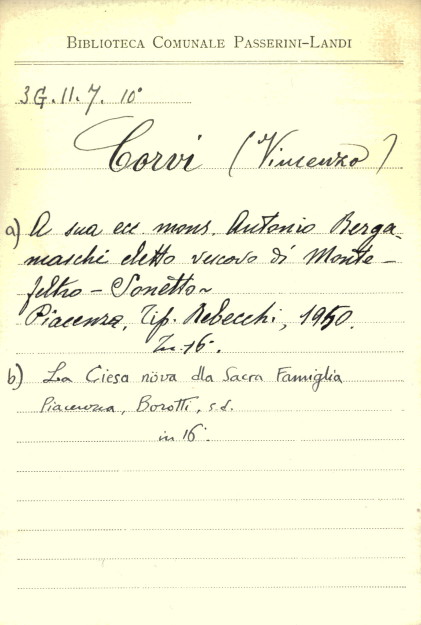 BIBLIOTECA COMUNALE PASSERINI-LANDI
3G.11.7. 10°
Corvi (Vincenzo)
a) A sua ecc. mons. Antonio Berga-
maschi eletto vescovo di Monte-
feltro - Sonetto ~
Piacenza, Tip. Rebecchi, 1950.
In-16°.
b) La Ciesa növa dla Sacra Famiglia
Piacenza, Borotti, s.d.
in 16°